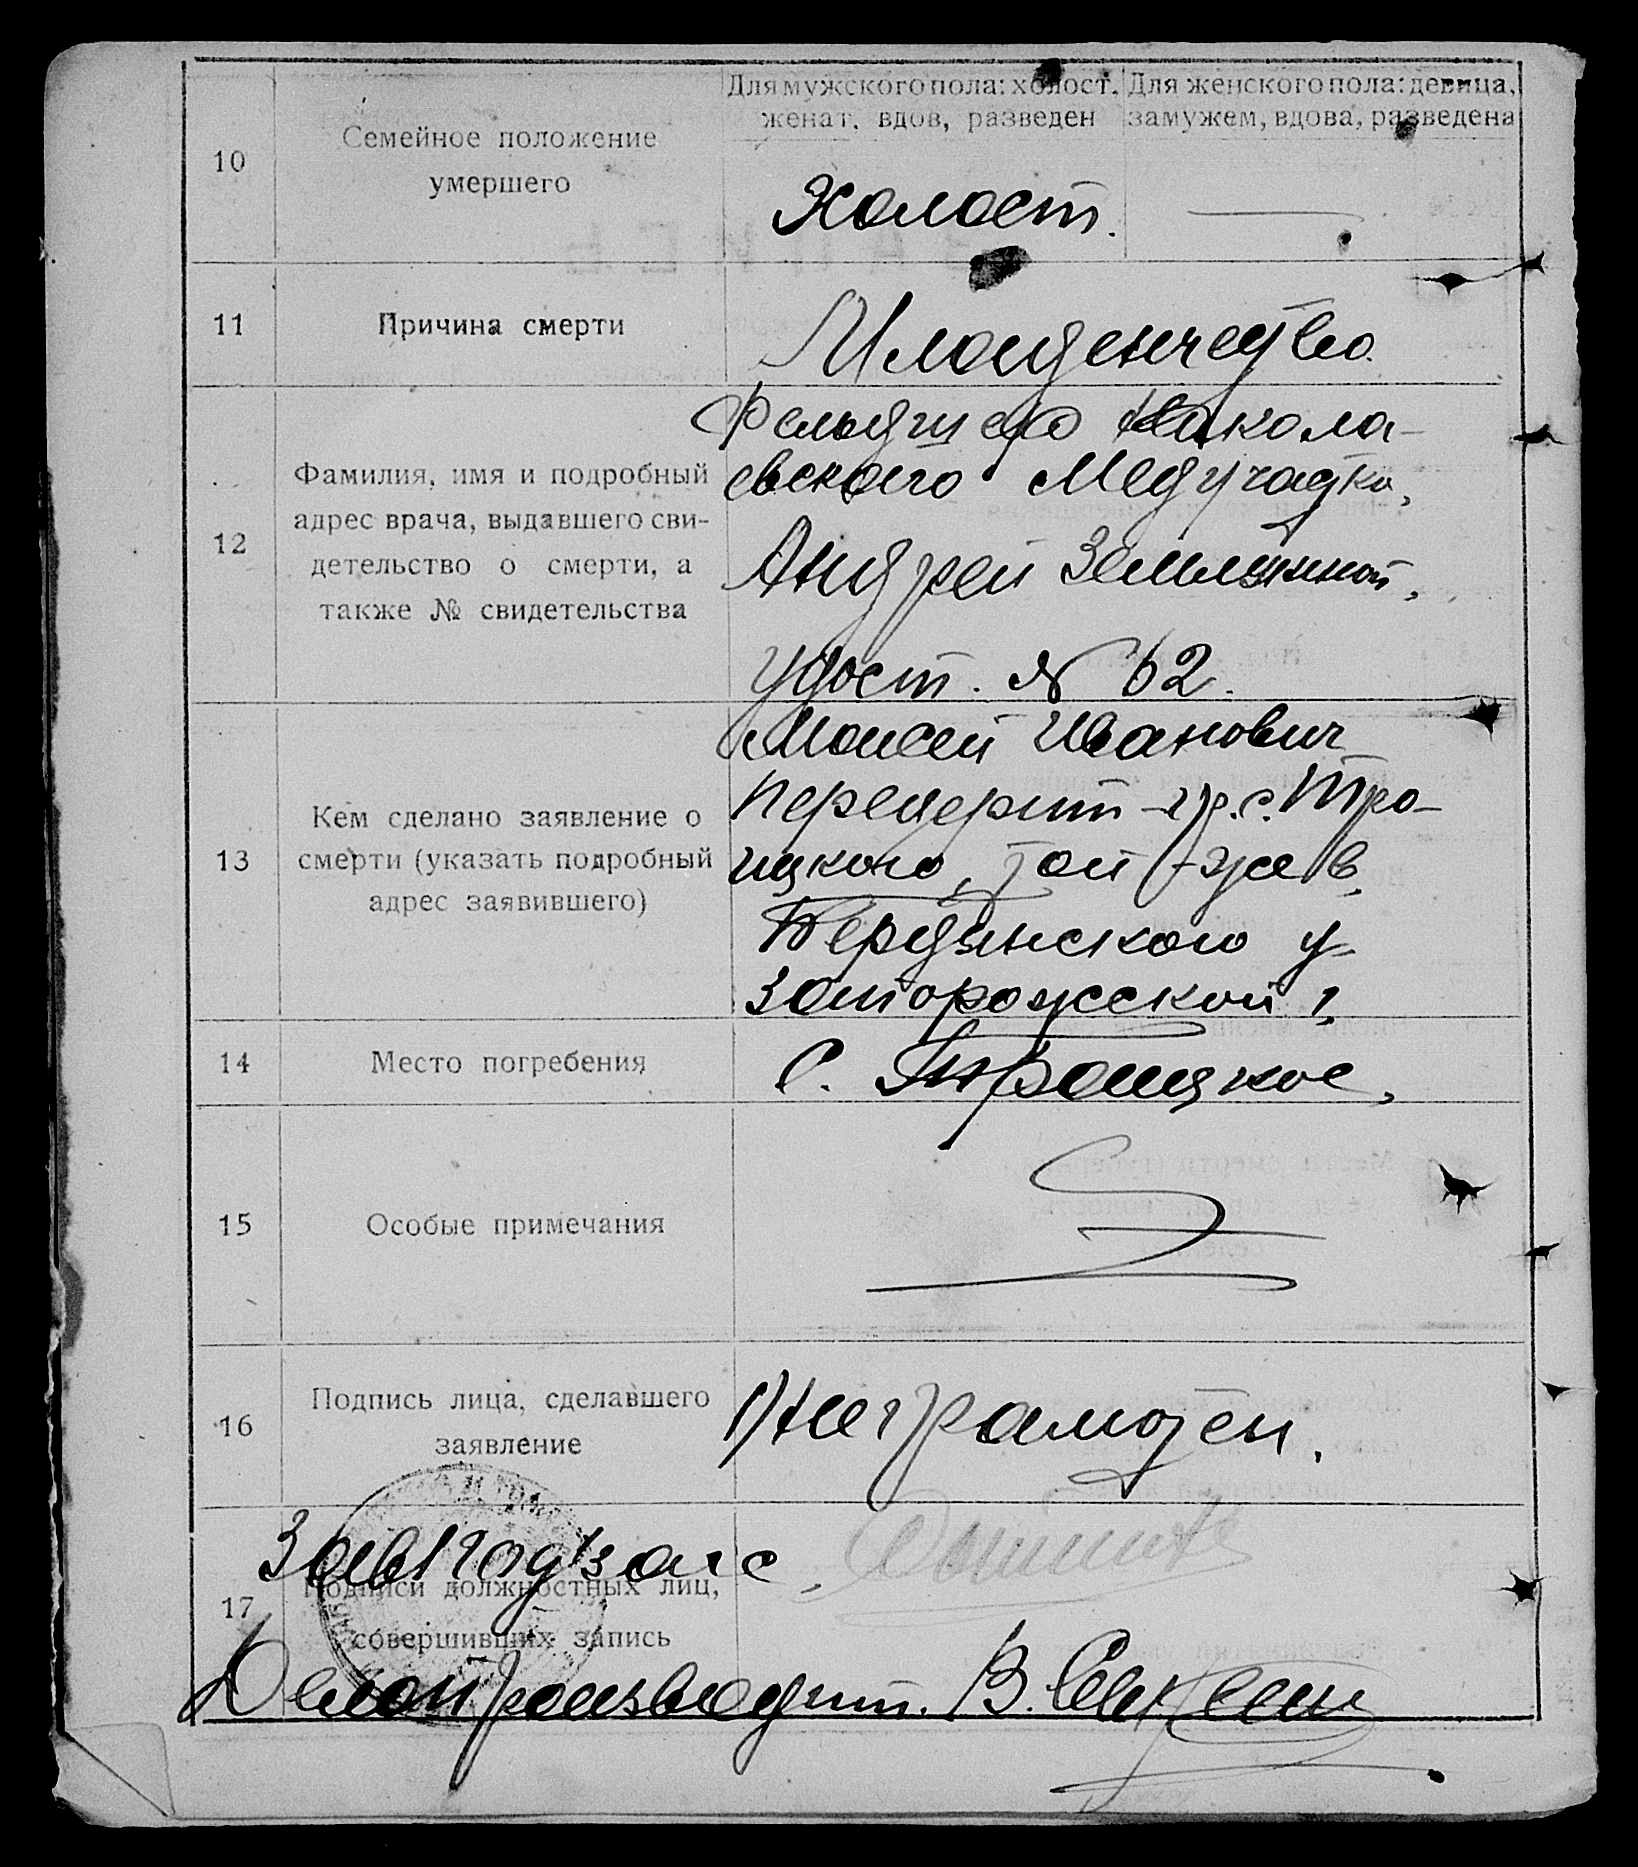 Для мужского пола: холост, женат, вдов, разведен
Для женского пола: девица, замужем, вдова, разведена
10
Семейное положение
умершего
Холост.
11
Причина смерти
Младенчество
12
Фамилия, имя и подробный
адрес врача, выдавшего сви-
детельство о смерти, а
также № свидетельства
Фельдшера Никола-
евского Медучастка,
Андрей Земляной,
Удост. № 62.
13
Кем сделано заявление о
смерти (указать подробный
адрес заявившего)
Моисей Иванович
гр. с. Тро-
ицкого, той-же в.
Бердянского у
Запорожской г,
14
Место погребения
С. Троицкое,
15
Особые примечания
16
Подпись лица, сделавшего
заявление
Неграмотен.
17
Подписи должностных лиц,
совершивших запись
Завподзагс,
Делопроизводит. В.